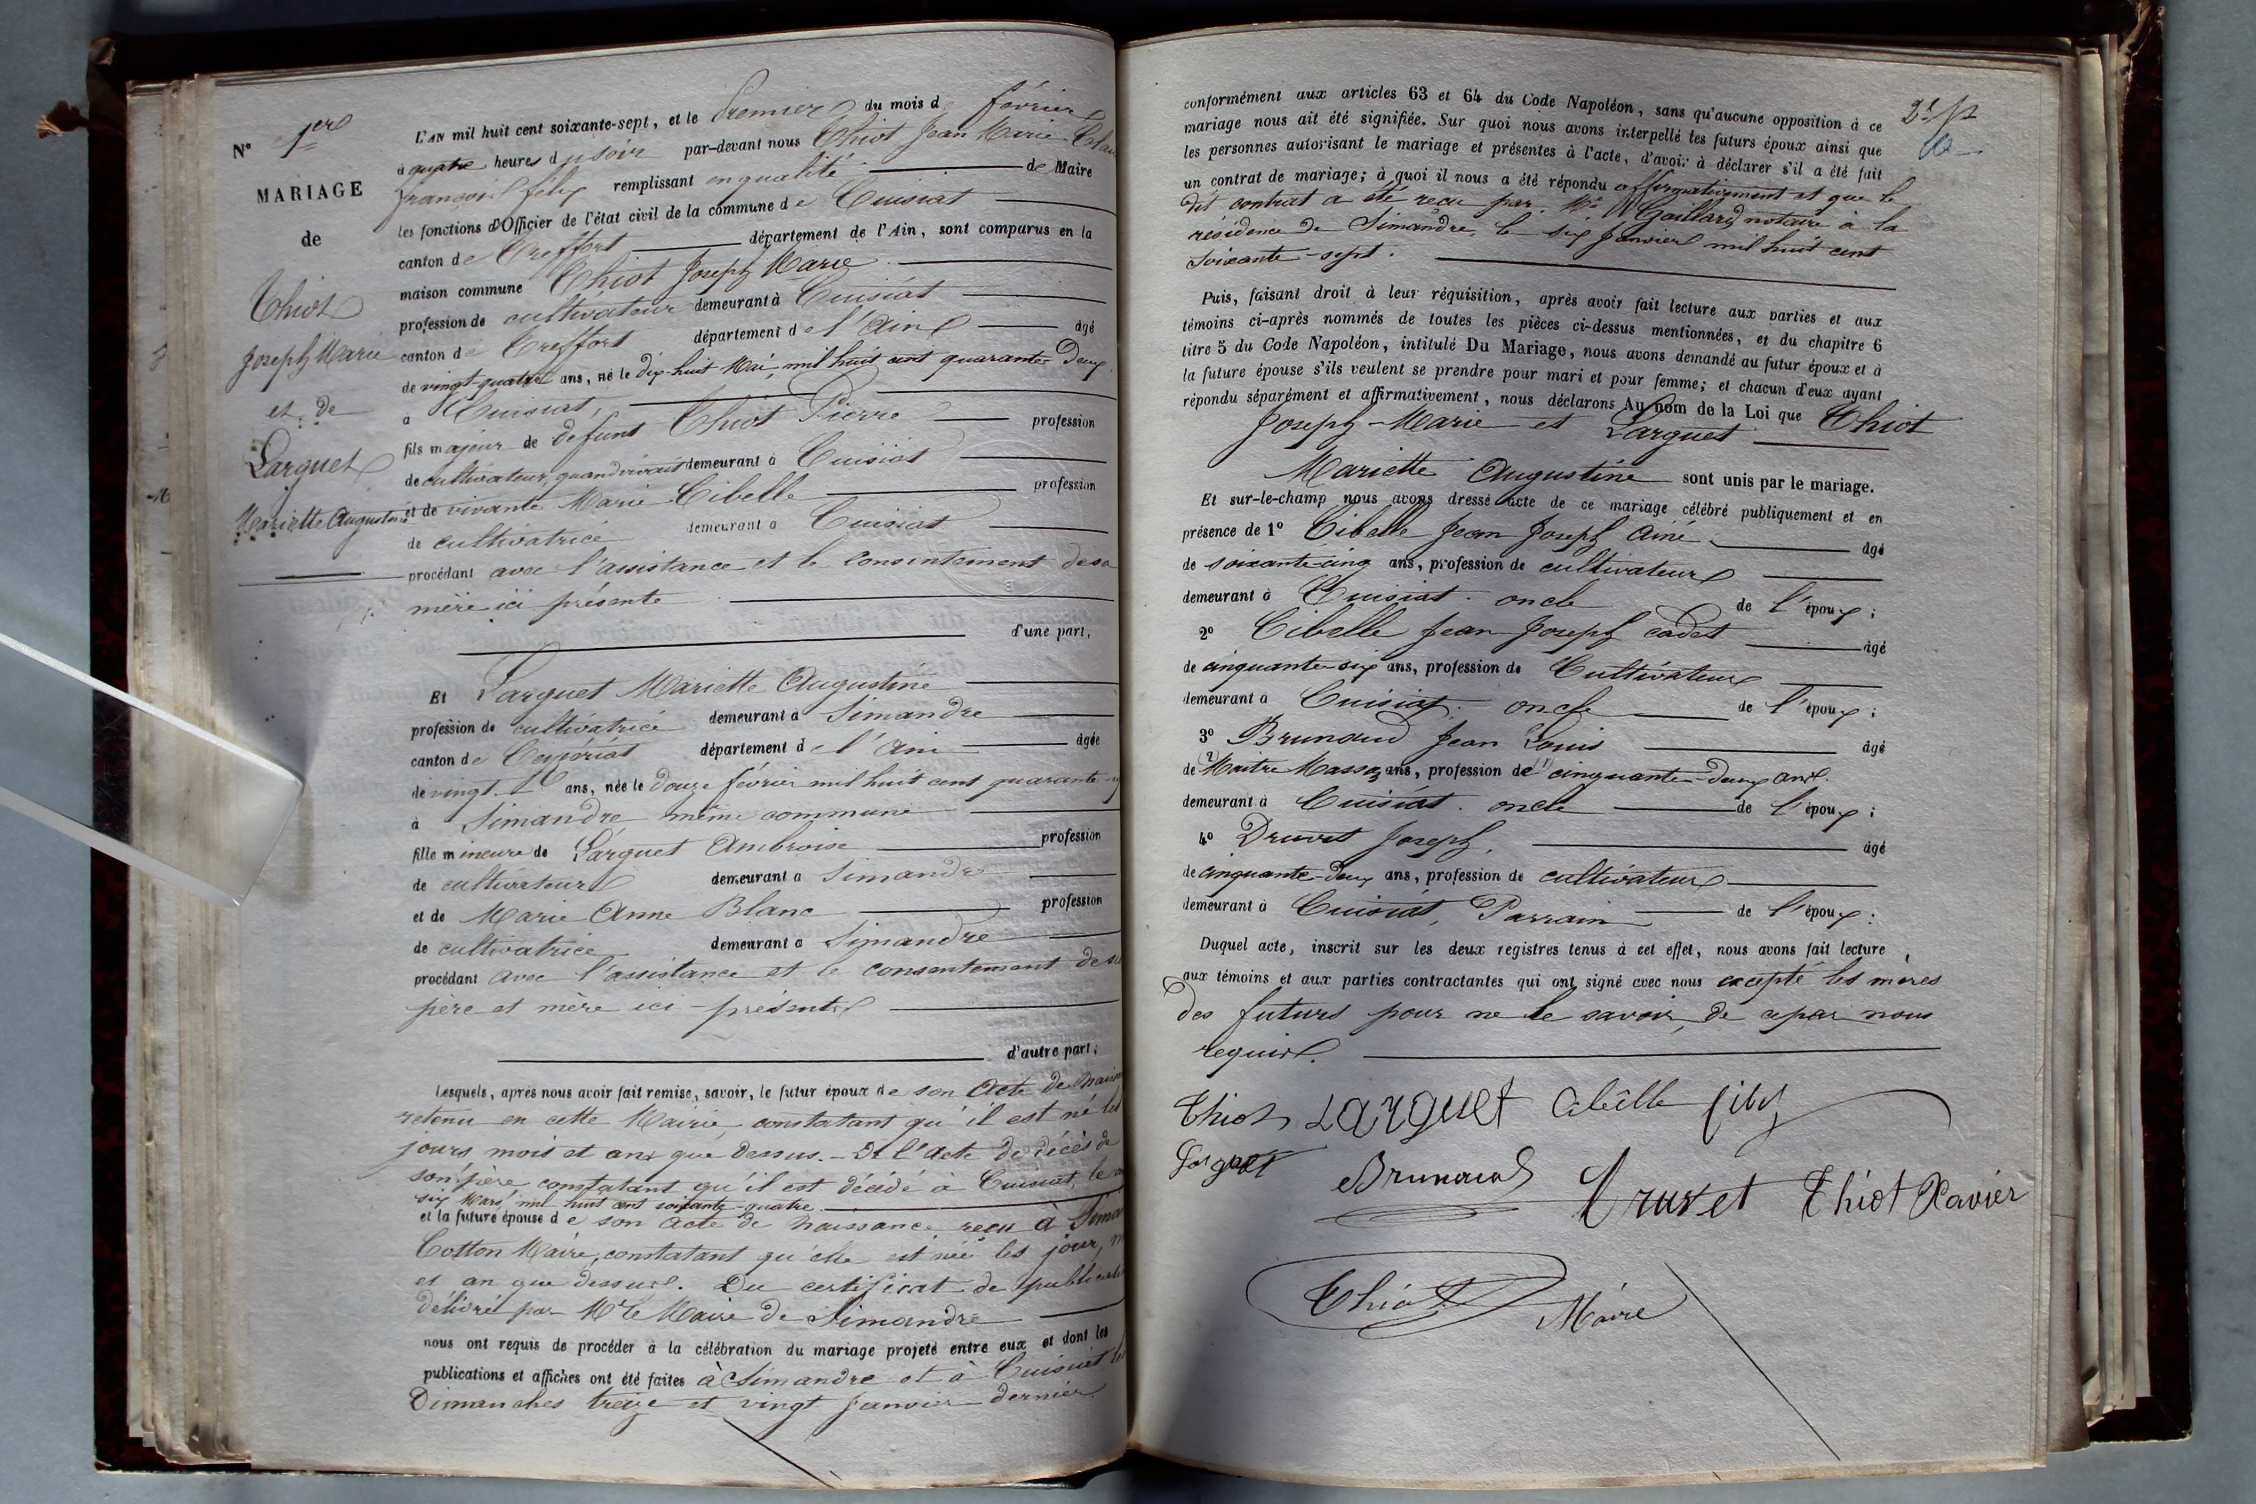 N° 1er
MARIAGE
de
Thiot
Joseph Marie
et de
Larguet
Mariette Augustine
L'AN mil huit cent soixante-sept, et le Premier du mois de février
à quatre heures du soir par-devant nous Thiot Jean Marie
françois félix remplissant en qualité de Maire
les fonctions d'Officier de l'état civil de la commune de Cuisiat
canton de Treffort département de l'Ain, sont comparus en la
maison commune Thiot Joseph Marie
profession de cultivateur demeurant à Cuisiat
canton de Treffort département de l'Ain âgé
de vingt-quatre ans, né le dix-huit Mai mil huit cent quarante-Deux
à Cuisiat,
fils majeur de défunt Thiot Pierre profession
de cultivateur, quand vivait demeurant à Cuisiat
et de vivante Marie Cibelle profession
de cultivatrice demeurant à Cuisiat
procédant avec l'assistance et le consentement de sa
mère ici présente
d'une part,
Et Larguet Mariette Augustine
profession de cultivatrice demeurant à Simandre
canton de Ceyzériat département de l'Ain âgée
de vingt ans, née le douze février mil huit cent quarante
à Simandre même commune
fille mineure de Larguet Ambroise profession
de cultivateur demeurant à Simandre
et de Marie Anne Blanc profession
de cultivatrice demeurant à Simandre
procédant avec l'assistance et le consentement de ses
père et mère ici-présents
d'autre part;
Lesquels, après nous avoir fait remise, savoir, le futur époux de son Acte de
retenu en cette Mairie, constatant qu'il est né les
jours mois et an que dessus. - Et l'acte de décès de
son père constatant qu'il est décédé à Cuisiat, le
six Mars mil huit cent soixante-quatre.
et la future épouse de son acte de naissance reçu à
Cotton Maire, constatant qu'elle est née les jour,
et an que dessus. Du certificat de
délivré par Mr le Maire de Simandre
nous ont requis de procéder à la célébration du mariage projeté entre eux et dont les
publications et affiches ont été faites à Simandre et à Cuisiat les
Dimanches treize et vingt Janvier dernier
conformément aux articles 63 et 64 du Code Napoléon, sans qu'aucune opposition à ce
mariage nous ait été signifiée. Sur quoi nous avons interpellé les futurs époux ainsi que
les personnes autorisant le mariage et présentes à l'acte, d'avoir à déclarer s'il a été fait
un contrat de mariage; à quoi il nous a été répondu affirmativement et que le
dit contrat a été reçu par Me Gaillard notaire à la
résidence de Simandre, le six Janvier mil huit cent
soixante-sept.
Puis, faisant droit à leur réquisition, après avoir fait lecture aux parties et aux
témoins ci-après nommés de toutes les pièces ci-dessus mentionnées, et du chapitre 6
titre 5 du Code Napoléon, intitulé Du Mariage, nous avons demandé au futur époux et à
la future épouse s'ils veulent se prendre pour mari et pour femme; et chacun d'eux ayant
répondu séparément et affirmativement, nous déclarons Au nom de la Loi que Thiot
Joseph-Marie et Larguet
Mariette Augustine sont unis par le mariage.
Et sur-le-champ nous avons dressé acte de ce mariage célébré publiquement et en
présence de 1° Cibelle Jean Joseph Ainé âgé
de soixante-cinq ans, profession de cultivateur
demeurant à Cuisiat. oncle de l'époux;
2° Cibelle Jean Joseph cadet âgé
de cinquante-six ans, profession de Cultivateur
demeurant à Cuisiat. oncle de l'époux;
3° Brunaud Jean Louis âgé
de Maître Masson ans, profession de cinquante-deux ans.
demeurant à Cuisiat. oncle de l'époux;
4° Druvet Joseph, âgé
de cinquante-deux ans, profession de cultivateur
demeurant à Cuisiat, Parrain de l'époux:
Duquel acte, inscrit sur les deux registres tenus à cet effet, nous avons fait lecture
aux témoins et aux parties contractantes qui ont signé avec nous excepté les mères
des futurs pour ne le savoir, de ce par nous
requis.
Thiot Larguet Cibelle
Larguet Brunaud Druvet Thiot Xavier
Thiot Maire